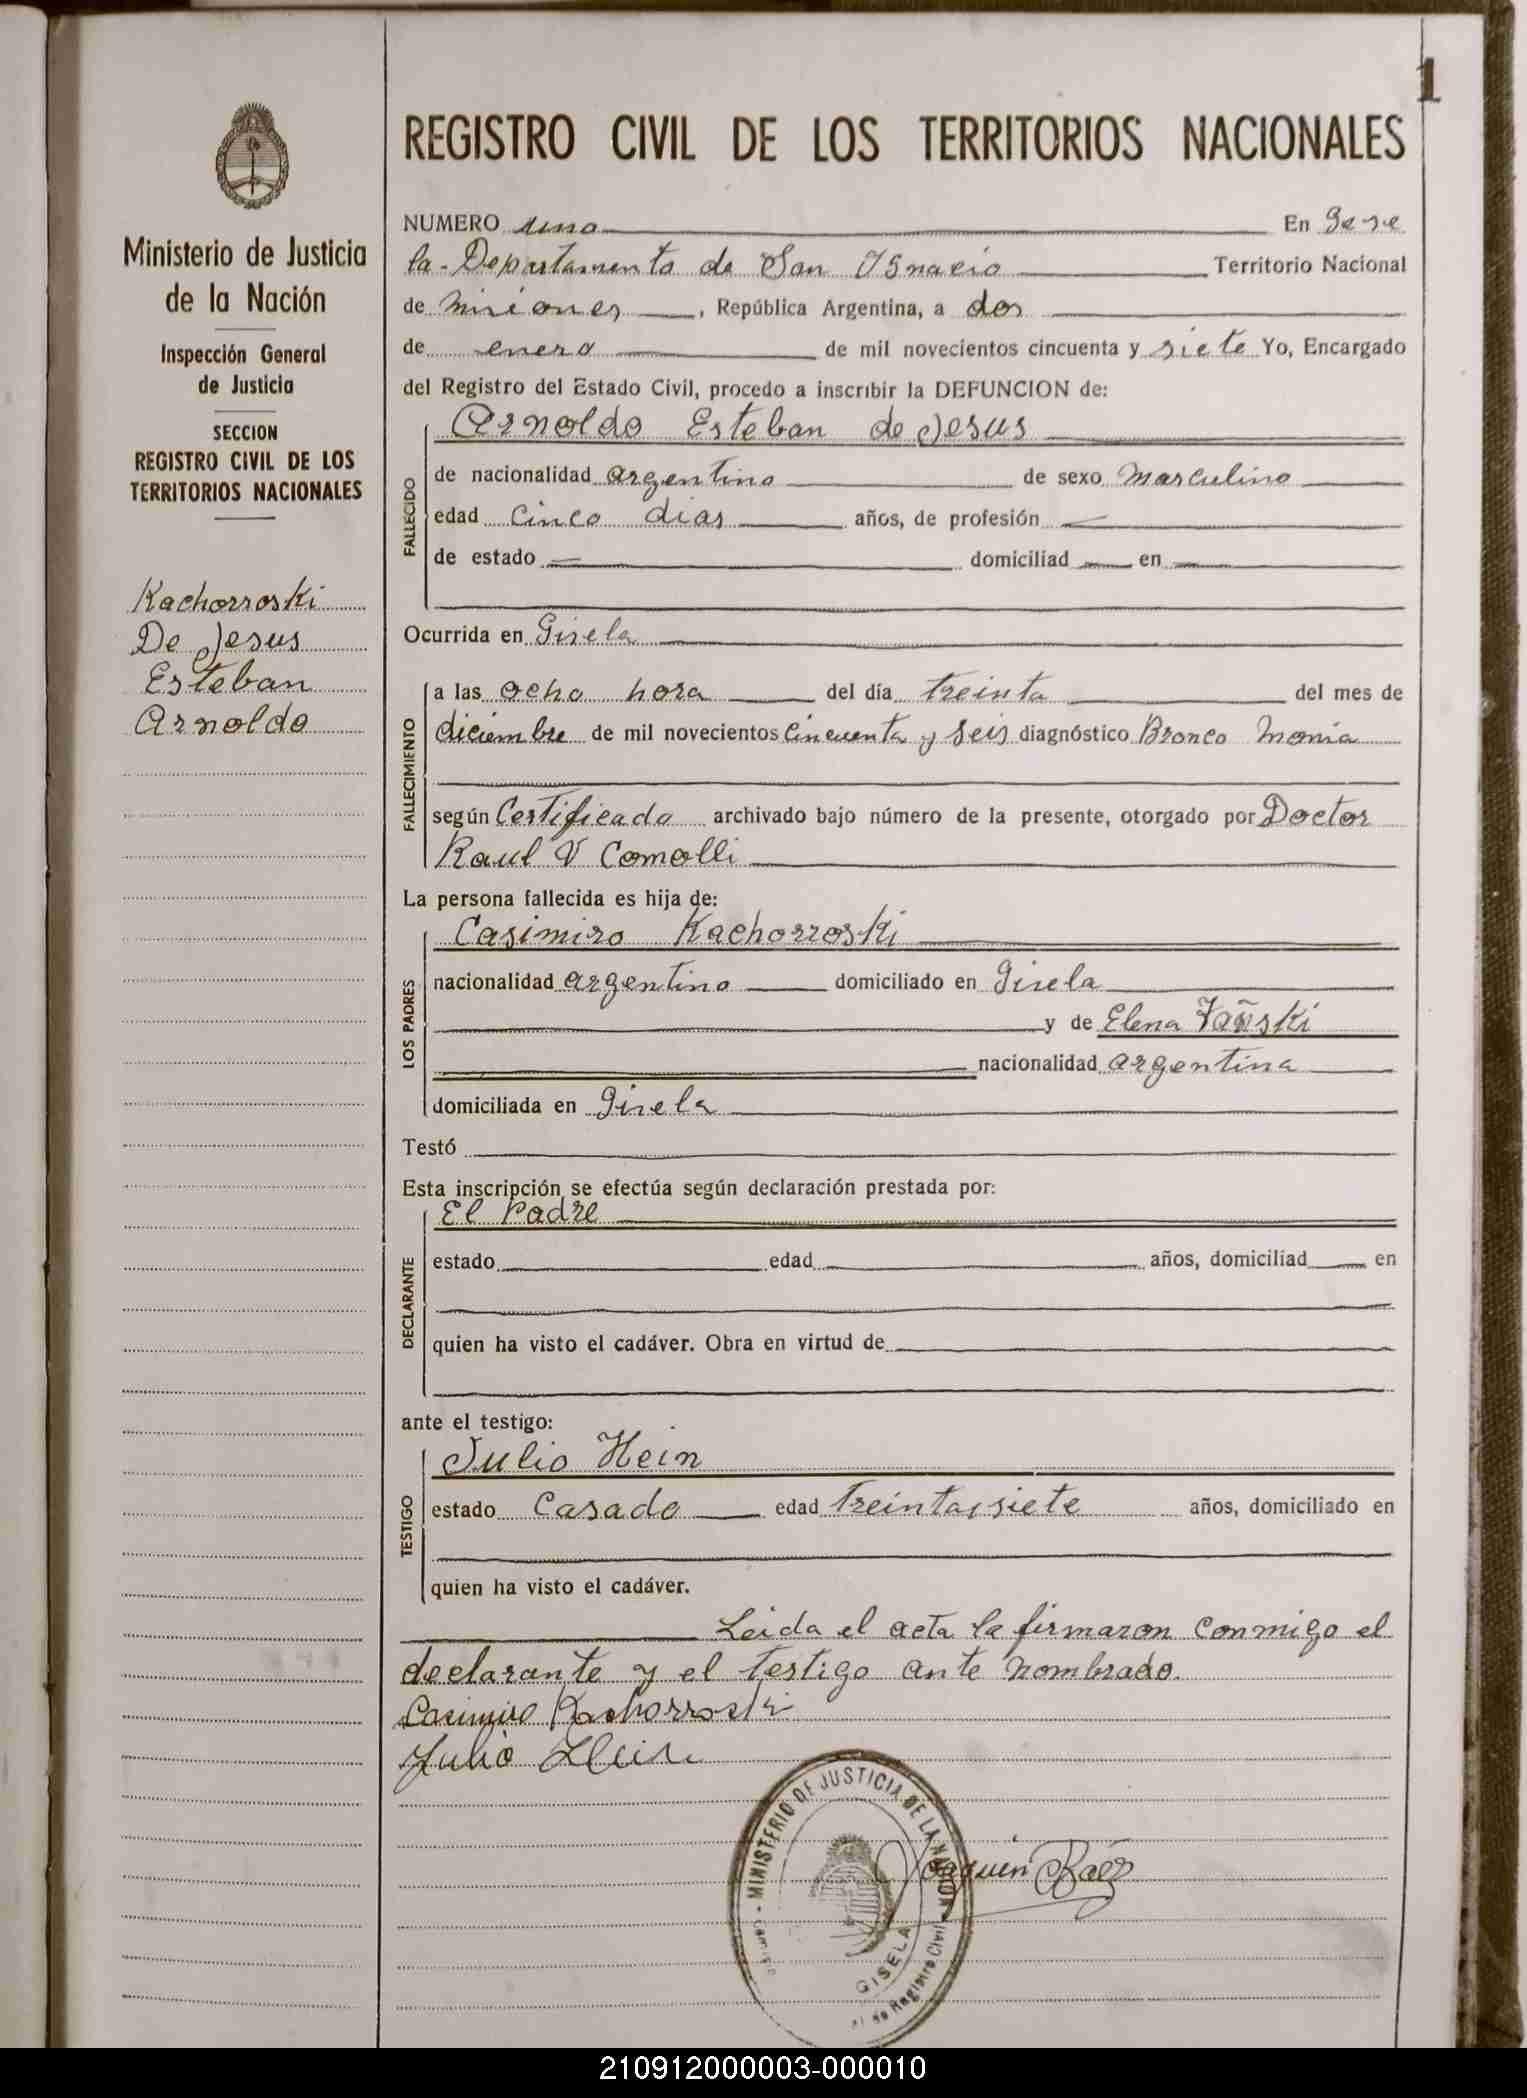 1
REGISTRO CIVIL DE LOS TERRITORIOS NACIONALES
Ministerio de Justicia
de la Nación
Inspección General
de Justicia
SECCION
REGISTRO CIVIL DE LOS
TERRITORIOS NACIONALES
Kachorroski
De Jesus
Esteban
Arnoldo
NUMERO uno En
la - Departamento de San Ignacio Territorio Nacional
de Misiones, República Argentina, a dos
de enero de mil novecientos cincuenta y siete Yo, Encargado
del Registro del Estado Civil, procedo a inscribir la DEFUNCION de:
Arnoldo Esteban de Jesus
FALLECIDO
de nacionalidad argentino de sexo Masculino
edad Cinco dias años, de profesión
de estado domiciliad en
Ocurrida en Gisela
FALLECIMIENTO
a las ocho hora del día treinta del mes de
diciembre de mil novecientos cincuenta y seis diagnóstico Bronco Monia
según Certificado archivado bajo número de la presente, otorgado por Doctor
Raul V Comolli
La persona fallecida es hija de:
LOS PADRES
Casimiro Kachorroski
nacionalidad argentino domiciliado en Gisela
y de Elena
nacionalidad argentina
domiciliada en Gisela
Testó
Esta inscripción se efectúa según declaración prestada por:
DECLARANTE
El Padre
estado edad años, domiciliad en
quien ha visto el cadáver. Obra en virtud de
ante el testigo:
TESTIGO
Julio Hein
estado Casado edad treintaysiete años, domiciliado en
quien ha visto el cadáver.
Leida el acta la firmaron conmigo el
declarante y el testigo ante nombrado.
Casimiro Kachorroski
Julio Hein
MINISTERIO DE JUSTICIA DE LA NACION
Joaquin Baez
GISELA
de Registro Civil
210912000003-000010